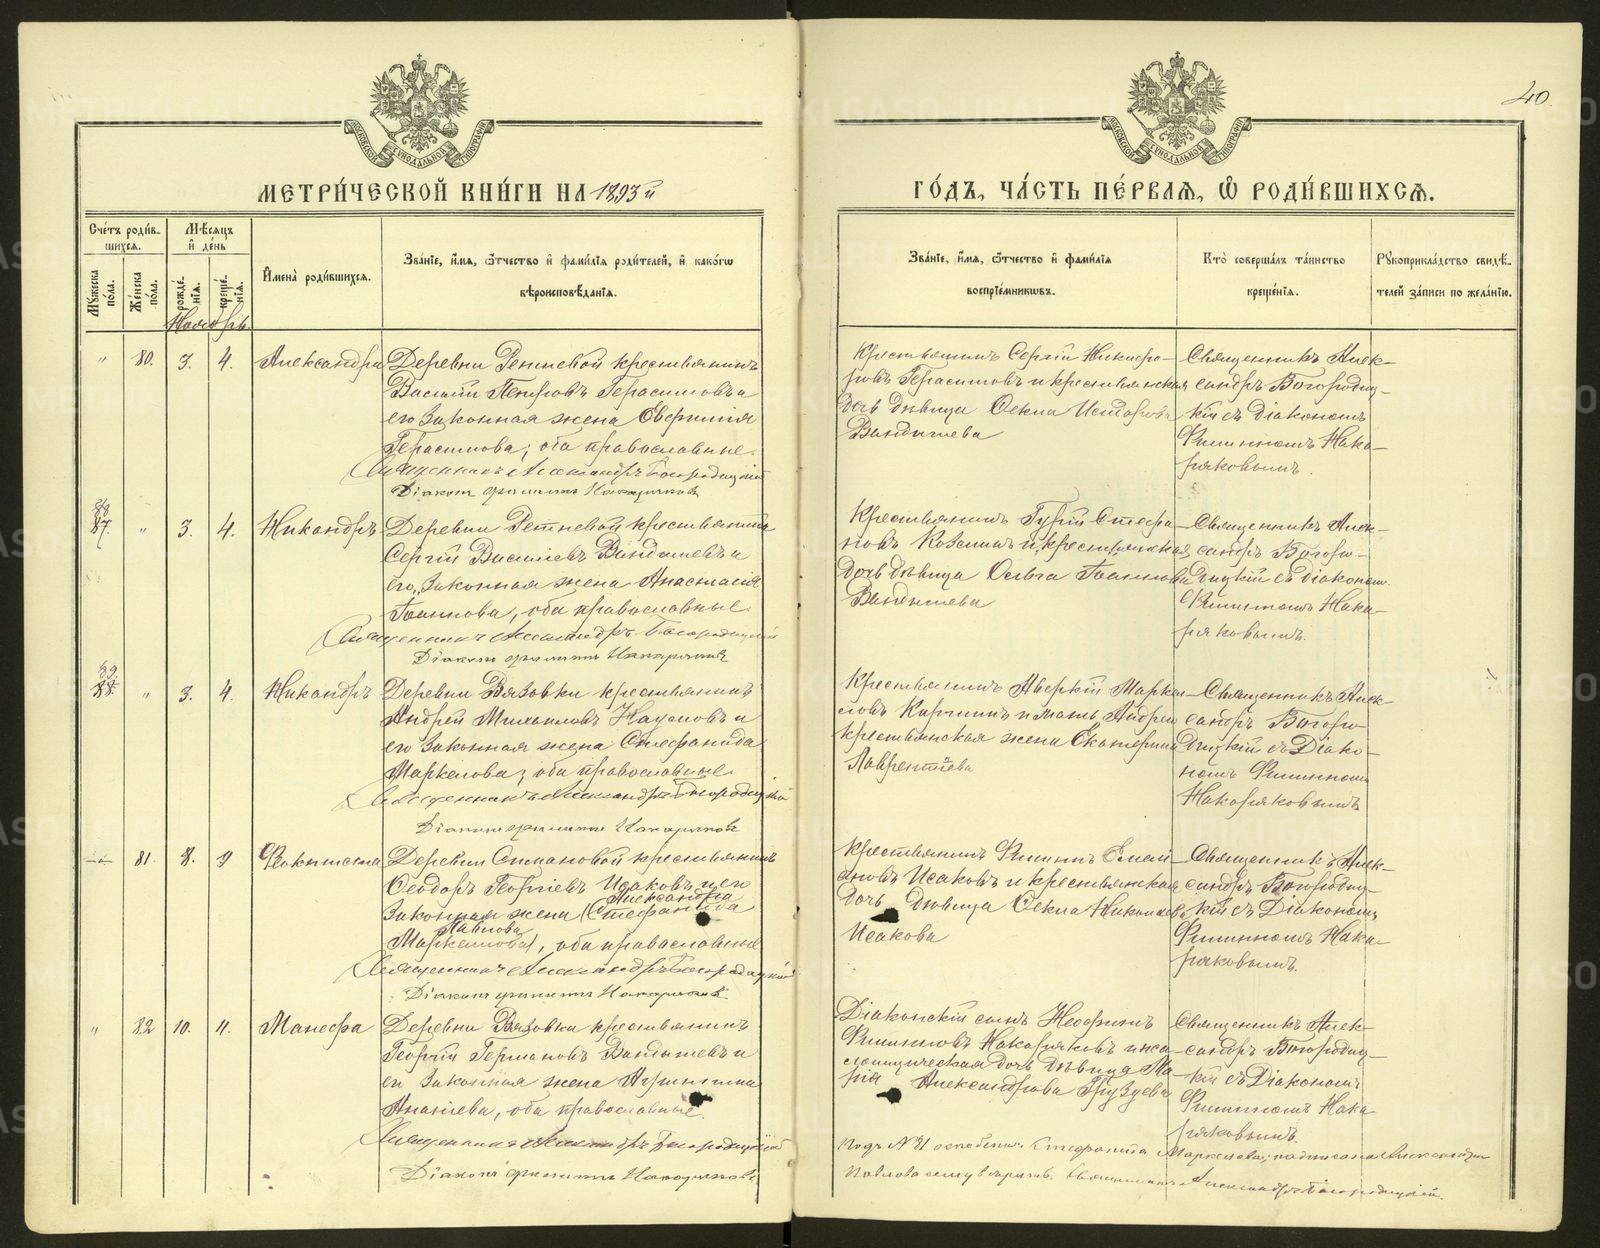 40
МЕТРИ́ЧЕСКОЙ КНИ́ГИ НА 1893й
ГО́ДЪ, ЧА́СТЬ ПЕ́РВАЯ, Ѡ РОДИ́ВШИХСЯ.
Сче́тъ роди́в-
шихся.
Мѣ́сяцъ
и де́нь
Му́жеска по́ла.
Же́нска по́ла.
рожде́нїя.
креще́нїя.
И҆мена̀ роди́вшихся.
Зва́нїе, и҆́мя, ѻ҆́тчество и҆ фами́лїя роди́телей, и҆ како́гѡ
вѣроисповѣ́данїя.
Зва́нїе, и҆́мя, ѻ҆́тчество и҆ фами́лїя
воспрїе́мникѡвъ.
Кто̀ соверша́лъ та́инство
креще́нїя.
Рꙋкоприкла́дство свидѣ́-
телей за́писи по жела́нїю.
Ноябрь.
" 80. 3. 4. Александра
Деревни Ретневой крестьянинъ
Василій Петровъ Герасимовъ и
его законная жена Евфимія
Герасимова; оба православные.
Священникъ Александръ Богородицкій
Діаконъ Филиппъ Накоряковъ
Крестьянинъ Сергій Никифо-
ровъ Герасимовъ и крестьянская
дочь дѣвица Ѳекла Исидорова
Вандышева
Священникъ Алек-
сандръ Богородиц-
кій съ діакономъ
Филиппомъ Нако-
ряковымъ.
88
87. " 3. 4. Никандръ
Деревни Ретневой крестьянинъ
Сергій Василіевъ Вандышевъ и
его законная жена Анастасія
Іоаннова, оба православные.
Священникъ Александръ Богородицкій
Діаконъ Филиппъ Накоряковъ
Крестьянинъ Гурій Стефа-
новъ Козминъ и крестьянская
дочь дѣвица Ольга Іоаннова
Вандышева
Священникъ Алек-
сандръ Богоро-
дицкій съ діаконом.
Филиппомъ Нако-
ряковымъ.
89.
88. " 3. 4. Никандръ
Деревни Вязовки крестьянинъ
Андрей Михайловъ и
его законная жена Стефанида
Маркелова; оба православные.
Священникъ Александръ Богородицкій
Діаконъ Филиппъ Накоряковъ
Крестьянинъ Аверкій Марке-
ловъ и мать Андрея
крестьянская жена Екатерина
Лаврентіева
Священникъ Алек-
сандръ Богоро-
дицкій съ Діако-
номъ Филиппом
Накоряковымъ
81. 8. 9
Деревни крестьянинъ
Ѳеодоръ Георгіевъ Исаковъ и его
Александра
законная жена (Стефанида
Павлова
Маркелова), оба православные
Священникъ Александръ Богородицкій
Діаконъ Филиппъ Накоряковъ.
Крестьянинъ Филиппъ Емел-
яновъ Исаковъ и крестьянская
дочь дѣвица Ѳекла Николаева
Исакова
Священникъ Алек-
сандръ Богородиц-
кій съ Діакономъ
Филиппомъ Нако-
ряковымъ.
" 82 10. 11. Манефа
Деревни Вязовки крестьянинъ
Георгій Германовъ Вандышевъ и
его законная жена
Ананіева, оба православные.
Священникъ Александръ Богородицкій
Діаконъ Филиппъ Накоряковъ
Діаконскій сынъ
Филипповъ Накоряковъ и
дочь дѣвица Ма-
рія Александрова Груздева
Священникъ Алек-
сандръ Богородиц-
кій съ Діакономъ
Филиппомъ Нако-
ряковымъ.
Подъ № 81 Стефанида Маркелова; надписано Александра
Павлова Священникъ Александръ Богородицкій.